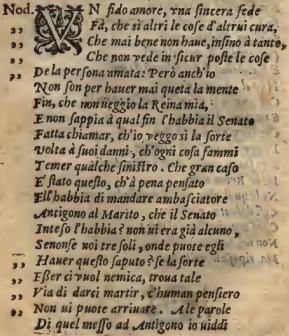 Nod. VN fido amore, vna sincera fede
,, Fà, che sì altri le cose d'altrui cura,
,, Che mai bene non haue, insino à tanto,
,, Che non vede in'sicur poste le cose
,, De la persona amata: Però anch'io
Non son per hauer mai queta la mente
Fin, che non ueggio la Reina mia,
E non sappia à qual fin l'habbia il Senato
Fatta chiamar, ch'io veggo sì la sorte
Volta à suoi danni, ch'ogni cosa fammi
Temer qualche sinistro. Che gran caso
E stato questo, ch'à pena pensato
Ell'habbia di mandare ambasciatore
Antigono al Marito, che il Senato
Inteso l'habbia? non ui era già alcuno,
Senonse noi tre soli, onde puote egli
,, Hauer questo saputo? se la sorte
,, Esser ci vuol nemica, troua tale
,, Via di darci martir, c'human pensiero
,, Non ui puote arriuare. A le parole
Di quel messo ad Antigono io uiddi